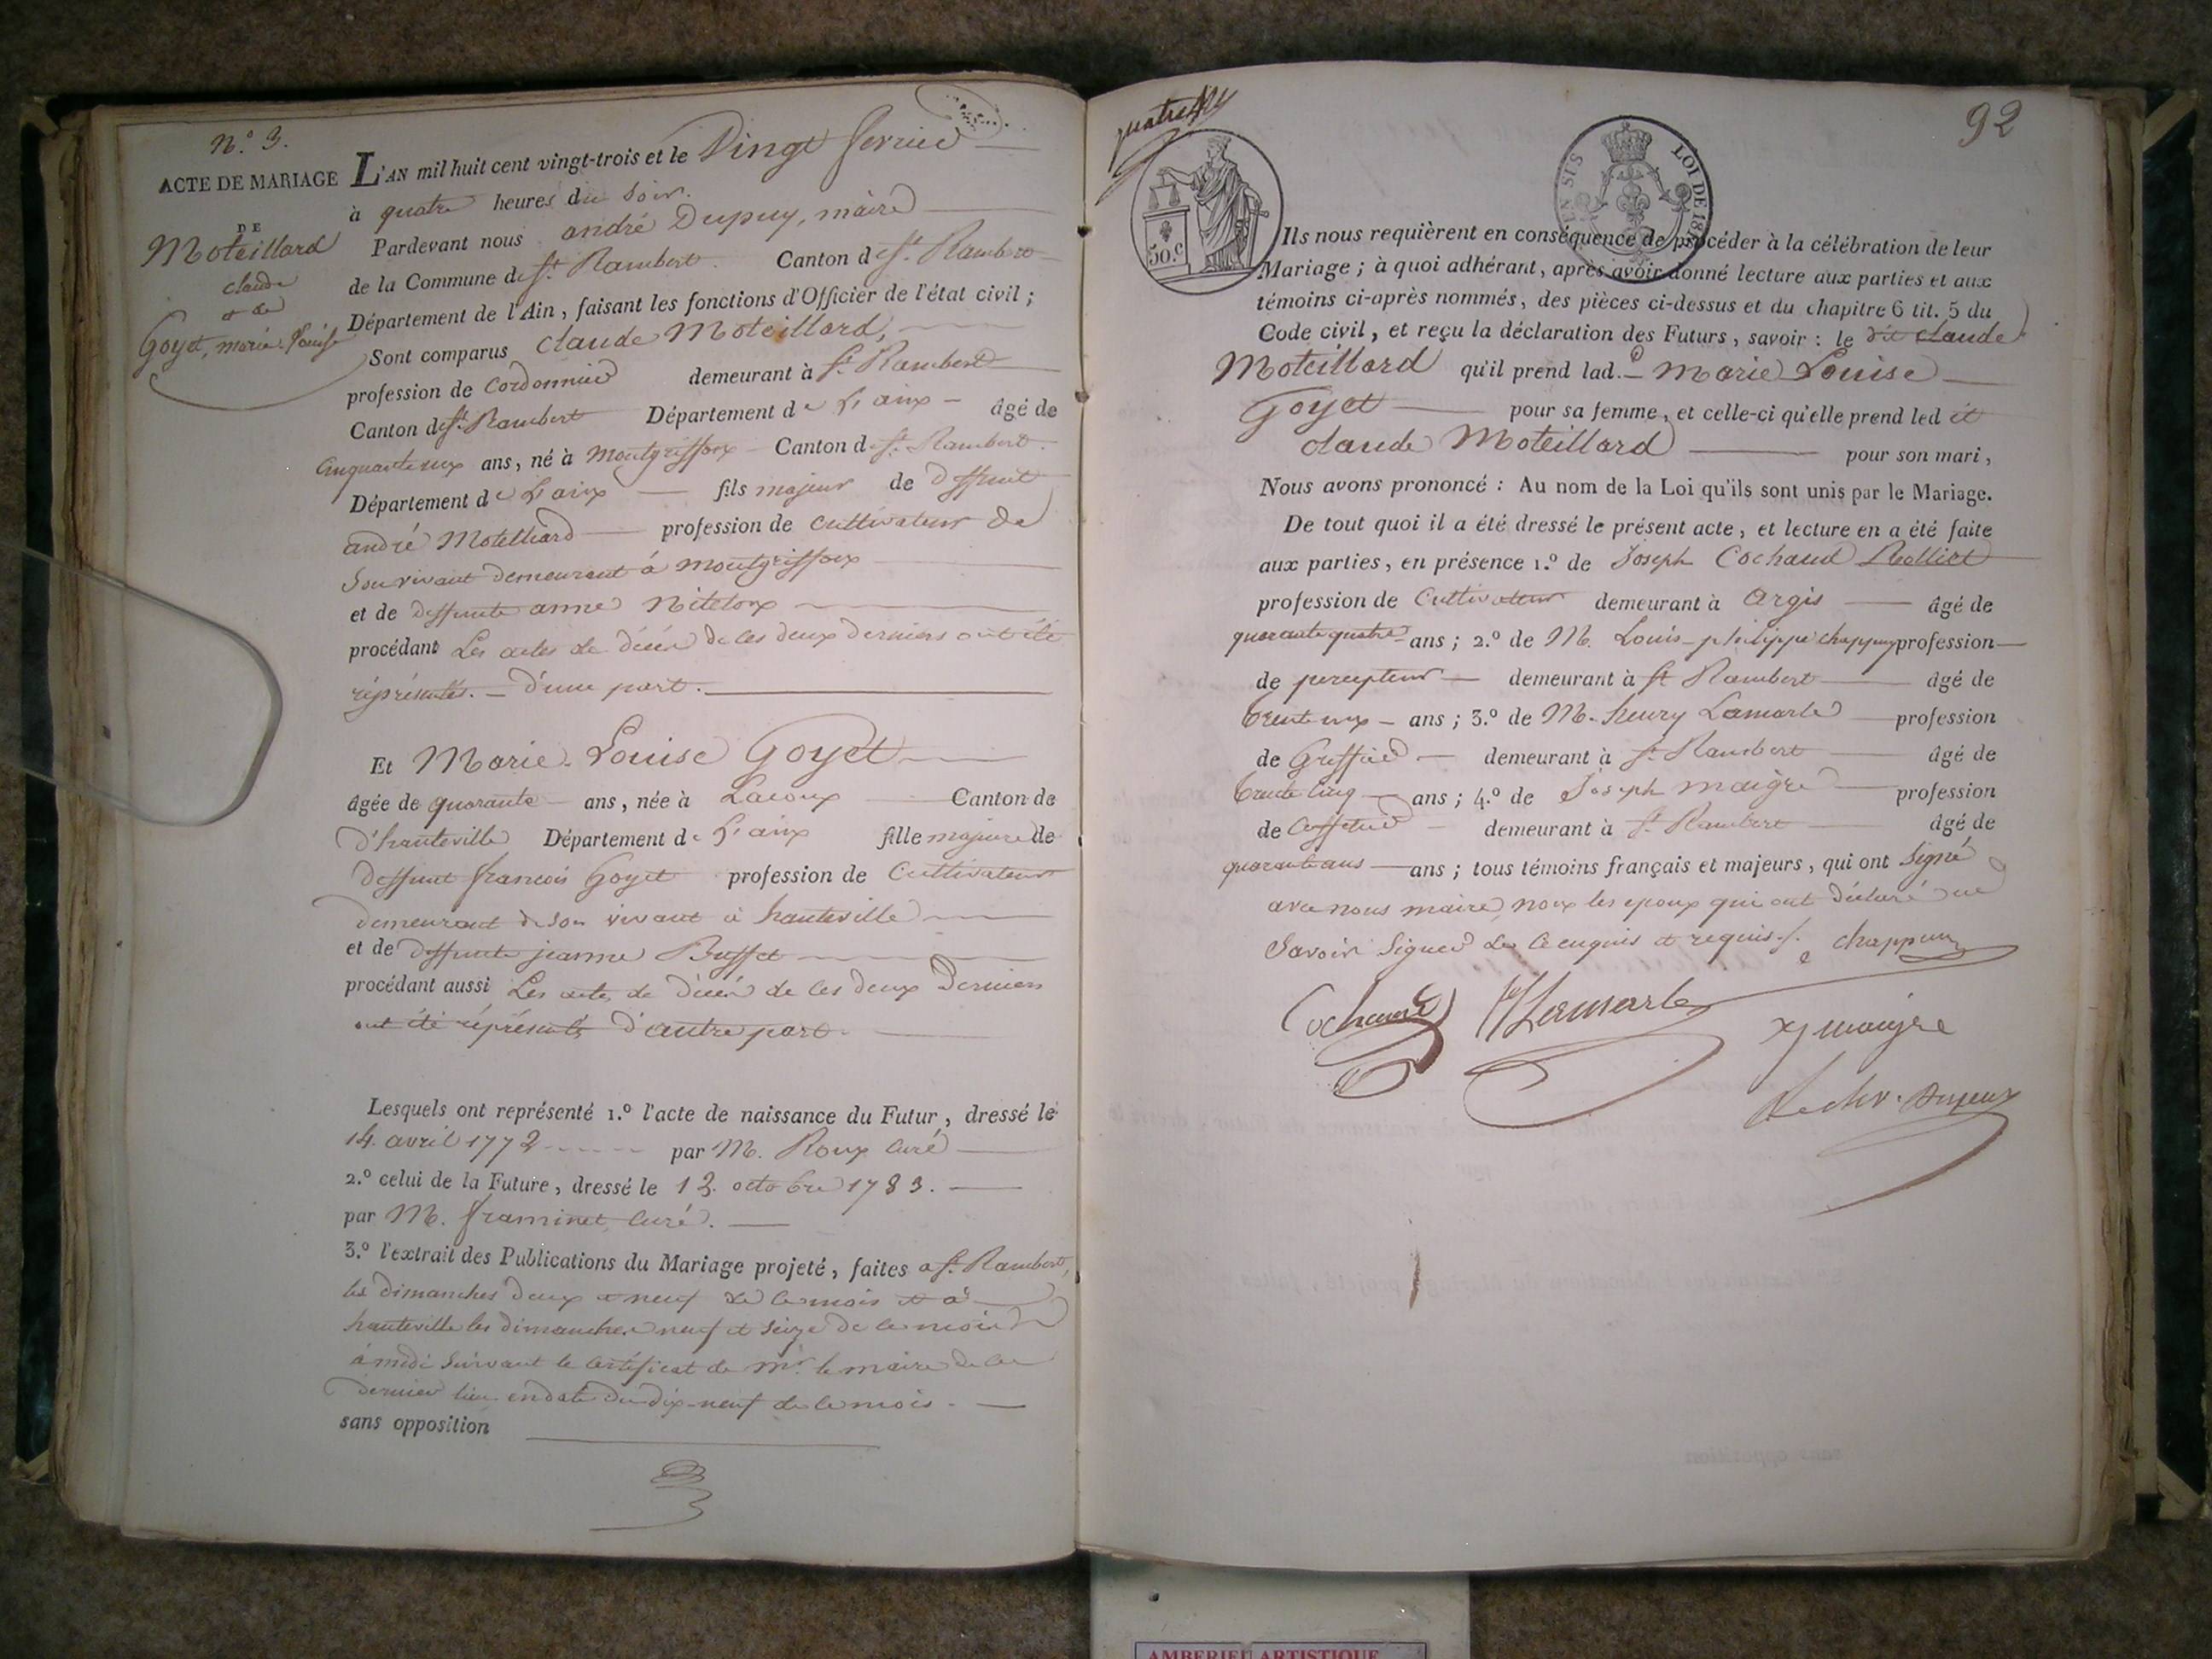 N.° 3.
ACTE DE MARIAGE
DE
Moteillard
claude
& de
Goyet, marie-Louise
L'AN mil huit cent vingt-trois et le Vingt fevrier
à quatre heures du Soir.
Pardevant nous andré Dupuy, maire
de la Commune de St. Rambert. Canton de St. Rambert
Département de l'Ain, faisant les fonctions d'Officier de l'état civil;
Sont comparus claude Moteillard,
profession de Cordonnier demeurant à St. Rambert
Canton de St. Rambert Département de L'ain âgé de
Cinquante ans, né à Montgriffon Canton de St. Rambert.
Département de L'ain fils majeur de deffunt
andré Moteillard profession de cultivateur de
Son vivant demeurant à Montgriffon
et de deffunte anne
procédant Les actes de décès de ces deux derniers ont été
réprésentés. — d'une part.
Et Marie-Louise Goyet
âgée de quarante ans, née à Lacoux Canton de
d'hauteville Département de L'ain fille majeure de
deffunt francois Goyet profession de Cultivateur
demeurant de son vivant à hauteville
et de deffunte jeanne Buffet
procédant aussi Les actes de décès de ces deux Derniers
ont été réprésentés d'autre part.
Lesquels ont représenté 1.° l'acte de naissance du Futur, dressé le
14. avril 1772 par M. Roux Curé
2.° celui de la Future, dressé le 12. octobre 1783.
par M. framinet Curé.
3.° l'extrait des Publications du Mariage projeté, faites a St. Rambert,
les dimanches deux et neuf de ce mois et à
hauteville les dimanches neuf et seize de ce mois
à midi Suivant le certificat de Mr. le maire de ce
dernier lieu en date du dix-neuf de ce mois.
sans opposition
92
50.C
LOI DE 181
Ils nous requièrent en conséquence de procéder à la célébration de leur
Mariage; à quoi adhérant, après avoir donné lecture aux parties et aux
témoins ci-après nommés, des pièces ci-dessus et du chapitre 6 tit. 5 du
Code civil, et reçu la déclaration des Futurs, savoir: le dit claude
Moteillard qu'il prend lad.e Marie Louise
Goyet pour sa femme, et celle-ci qu'elle prend led it
claude Moteillard pour son mari,
Nous avons prononcé: Au nom de la Loi qu'ils sont unis par le Mariage.
De tout quoi il a été dressé le présent acte, et lecture en a été faite
aux parties, en présence 1.° de Joseph Cochaud
profession de Cultivateur demeurant à Argis âgé de
quarante quatre ans; 2.° de M. Louis-philippe chappuy profession
de percepteur demeurant à St Rambert âgé de
trente ans; 3.° de M. henry Lamarle profession
de Greffier demeurant à St. Rambert âgé de
trente cinq ans; 4.° de Joseph maigre profession
de Caffetier demeurant à St. Rambert âgé de
quarante ans ans; tous témoins français et majeurs, qui ont Signé
avec nous maire, non les epoux qui ont déclaré ne
Savoir Signer de ce enquis et requis./. chappuy
Cochaud H Lamarle
maigre
Le chr. Dupuy
AMBERIEU ARTISTIQUE